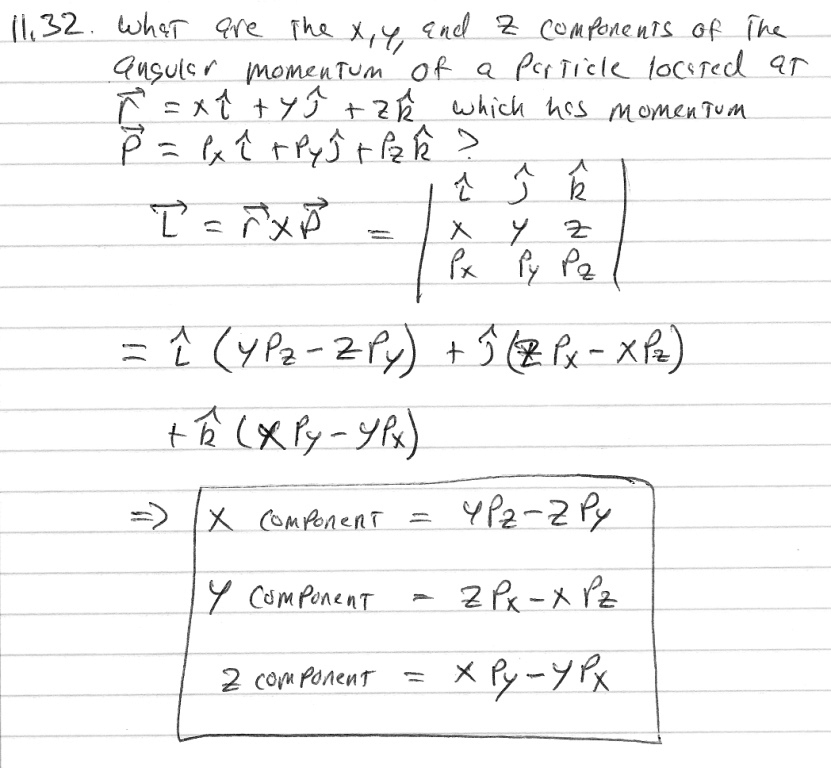 11.32. What are the x, y, and z components of the
angular momentum of a particle located at
r⃗ = x î + y ĵ + z k̂ which has momentum
P⃗ = Px î + Py ĵ + Pz k̂ ?
L⃗ = r⃗ x P⃗ = | î ĵ k̂ |
| x y z |
| Px Py Pz |
= î (y Pz - z Py) + ĵ (z Px - x Pz)
+ k̂ (x Py - y Px)
=> x component = y Pz - z Py
y component = z Px - x Pz
z component = x Py - y Px